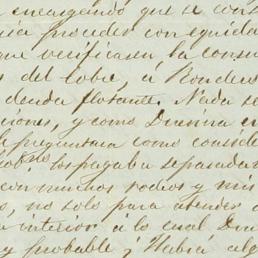 encargando que se con
ia proceder con equida
que verificasen la consu
s del Cobre, á Ronde
deuda flotante. Nada se
ciones, y como Dn
preguntara como consid
los pagaba separada
con muchos rodeos y mis
s, no solo para atender á
interior á lo cual D
y probable y Habia alg